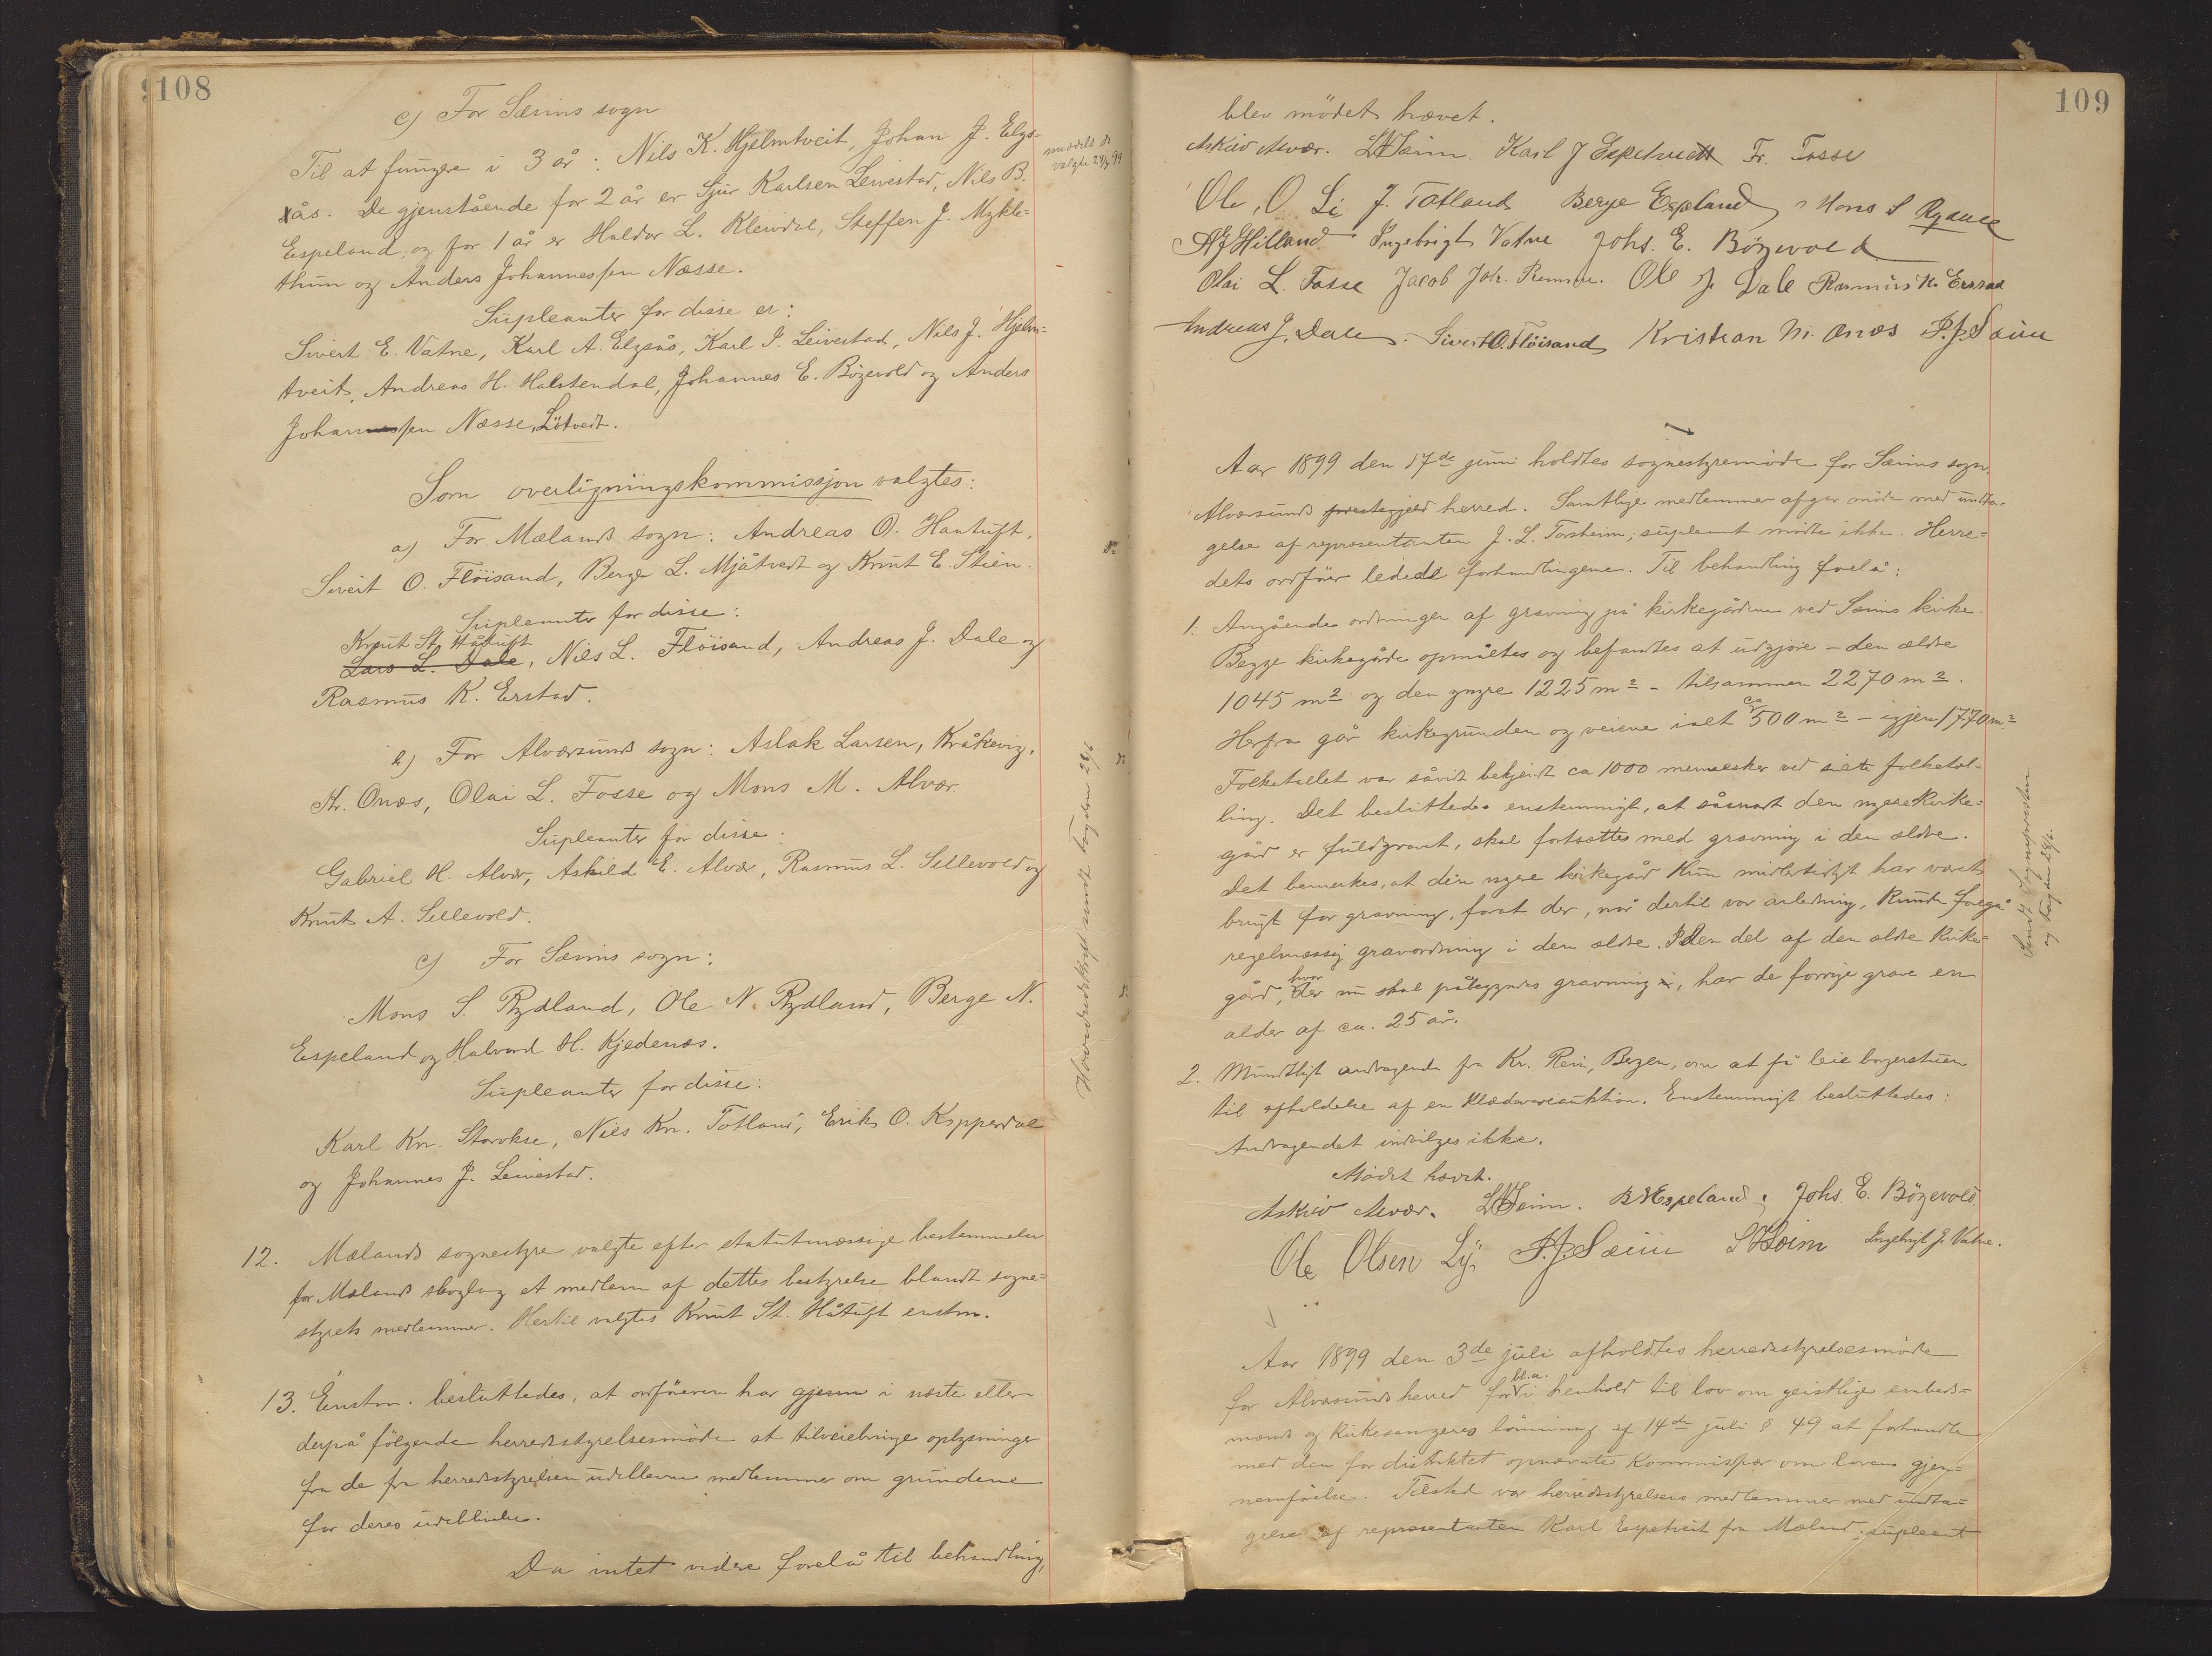 108
c) For Sæims sogn
Til at fungere i 3 år: Nils K. Hjelmtveit, Johan J. Elgs=
ås. De gjenstående for 2 år er Sjur Karlsen Leivestad, Nils B.
Espeland; og for 1 år er Haldor L. Kleivdal, Steffen J. Mykle=
thun og Anders Johannessen Næsse.
Supleanter for disse er:
Sivert E. Vatne, Karl A. Elgsås, Karl J. Leivestad, Nils J. Hjelm=
tveit, Andreas H. Halstendal, Johannes E. Bøgevold og Anders
Johannessen Næsse, Løtvedt.
meddelt de
valgte 24/7 99
Som overligningskommissjon valgtes:
a) For Mælands sogn: Andreas O. Hantuft,
Sivert O. Fløisand, Berge L. Mjåtvedt og Knut E. Stien.
Supleanter for disse:
Knut St. Håtuft
Lars L. Dale, Nils L. Fløisand, Andreas J. Dale og
Rasmus K. Erstad.
b) For Alværsunds sogn: Aslak Larsen, Kråkevig,
Kr. Onæs, Olai L. Fosse og Mons M. Alvær.
Supleanter for disse:
Gabriel H. Alvær, Askild E. Alvær, Rasmus L. Sellevold og
Knut A. Sellevold.
c) For Sæims sogn:
Mons S. Rydland, Ole N. Rydland, Berge N.
Espeland og Halvord H. Kjedenæs.
Supleanter for disse:
Karl Kn. Storokse, Nils Kn. Totland, Erik O. Kopperdal
og Johannes J. Leivestad.
Hovedudskrift sendt fogden 28/6
12. Mælands sognestyre valgte efter statutmæssige bestemmelser
for Mælands skoglag et medlem af dettes bestyrelse blandt sogne=
styrets medlemmer. Hertil valgtes Knut St. Håtuft enstm.
13. Enstm. besluttedes, at ordføreren har gjenn i næste eller
derpå følgende herredsstyrelsesmøde at tilveiebringe oplysninger
fra de fra herredsstyrelsen udeblevne medlemmer om grundene
for deres udeblivelse.
Da intet videre forelå til behandling,
109
blev mødet hævet.
Askild Alvær. L Sæim. Karl J Espetveit Fr. Fosse
Ole O. Li J. Totland Berge Espeland Mons S Rydland
A J Hilland Ingebrigt Vatne Johs. E. Bøgevold
Olai L. Fosse Jacob Joh. Ole J. Dale Rasmus K. Erstad
Andreas J. Dale. Sivert O. Fløisand Kristian M. Onæs P. J. Sæim
Aar 1899 den 17de juni holdtes sognestyremøde for Sæims sogn,
Alværsunds prestegjeld herred. Samtlige medlemmer afgav møde med undta=
gelse af repræsentanten J. L. Torsheim; supleant mødte ikke. Herre=
dets ordfører ledede forhandlingerne. Til behandling forelå:
1. Angående ordningen af gravning på kirkegårdene ved Sæims kirke.
Begge kirkegårde opmåltes og befandtes at udgjøre – den ældre
1045 m2 og den yngre 1225 m2 – tilsammen 2270 m2.
ca
Herfra går kirkegrunden og veiene ialt 500 m2 – igjen 1770 m2
Folketallet var såvidt bekjendt ca 1000 mennesker ved siste folketæl=
ling. Det besluttedes enstemmigt, at såsnart den nyere kirke=
gård er fuldgravet, skal fortsættes med gravning i den ældre.
Det bemerkes, at den nyere kirkegård kun midlertidigt har været
brugt for gravning, forat der, når dertil var anledning, kunde foregå
regelmæssig gravordning i den ældre. I den del af den ældre kirke=
hvor
gård, der nu skal påbegyndes gravning i, har de forrige grave en
alder af ca. 25 år.
Sendt Sogneprésten
og fogden 28/6.
2. Mundtligt andragende fra Kr. Rein, Bergen, om at få leie bogerstuen
til afholdelse af en klædevareauktion. Enstemmigt besluttedes:
Andragendet indvilges ikke.
Mødet hævet.
Askild Alvær. L Sæim. B N Espeland, Johs. E. Bøgevold.
Ole Olsen Ly P. J. Sæim Ingebrigt J. Vatne.
Aar 1899 den 3de juli afholdtes herredsstyrelsesmøde
bl.a.
for Alværsunds herred for i henhold til lov om geistlige embeds=
mænds og kirkesangeres lønning af 14de juli § 49 at forhandle
med den for distriktet opnævnte kommissær om lovens gjen=
nemførelse. Tilstede var herredsstyrelsens medlemmer med undta=
gelse af repræsentanten Karl Espetveit fra Mæland; supleant